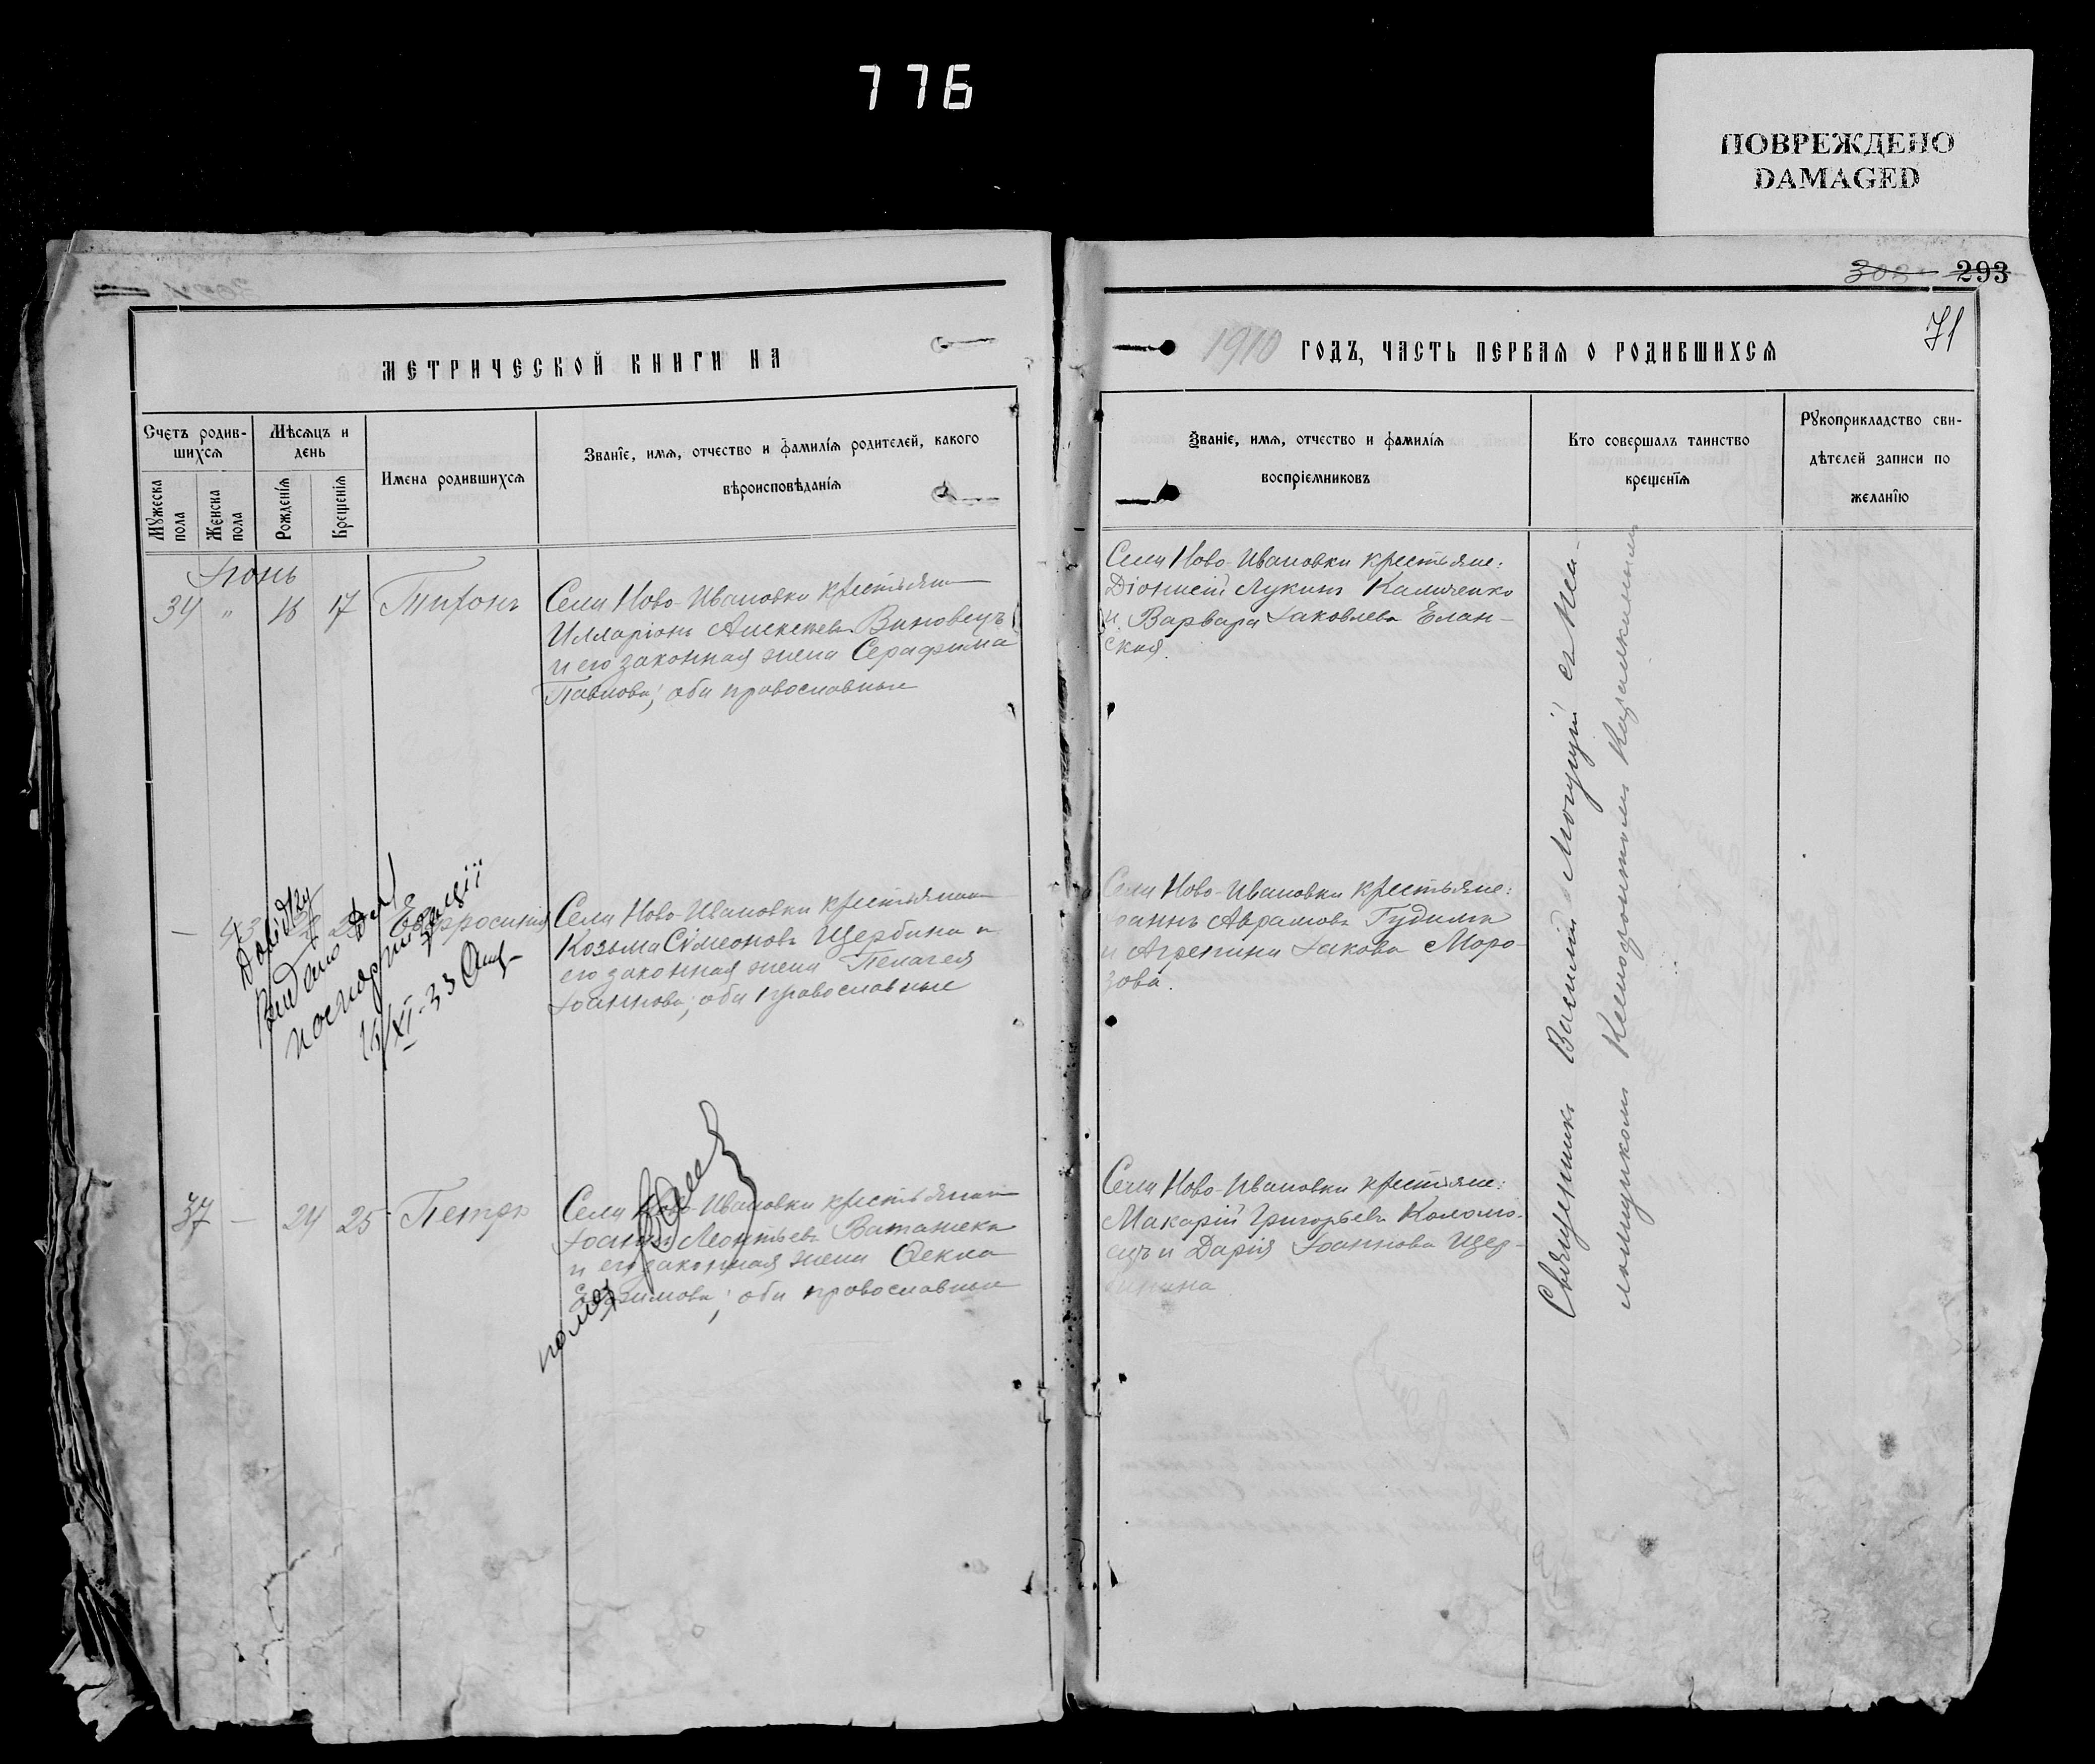 776
ПОВРЕЖДЕНО
DAMAGED
293
71
МЕТРИЧЕСКОЙ КНИГИ НА
1910 ГОДЪ, ЧАСТЬ ПЕРВАЯ О РОДИВШИХСЯ
Счетъ родив-
шихся
Мѣсяцъ и
день
Мужеска
пола
Женска
пола
Рожденїя
Крещенїя
Имена родившихся
Званїе, имя, отчество и фамилїя родителей, какого
вѣроисповѣданїя
Званїе, имя, отчество и фамилїя
воспрїемниковъ
Кто совершалъ таинство
крещенїя
Рукоприкладство сви-
дѣтелей записи по
желанїю
Іюнь
17 Тихонъ
Села Ново-Ивановки крестьянинъ
Илларіонъ Алексѣевъ Виновецъ
и его законная жена Серафима
Павлова; оба православные
Села Ново-Ивановки крестьяне:
Діонисій Лукинъ Каличенко
и Варвара Іаковлева Елан-
ская.
Евфросинія
Села Ново-Ивановки крестьянинъ
Козьма Сѵмеоновъ Щербина и
его законная жена Пелагея
Іоаннова; оба православные
Села Ново-Ивановки крестьяне:
Іоаннъ Аврамовъ Гудима
и Агрепина Іакова Моро-
зова.
Довідку
Видано
15/XI-33
37 — 24 25 Петръ
Села Ново-Ивановки крестьянинъ
Іоаннъ Леонтьевъ Ватажека
и его законная жена Ѳекла
Евфимова; оба православные
Села Ново-Ивановки крестьяне:
Макарій Григорьевъ Коломо-
ецъ и Дарія Іоаннова Щер-
бинина
Священникъ Василій Могущій съ пса-
ломщикомъ